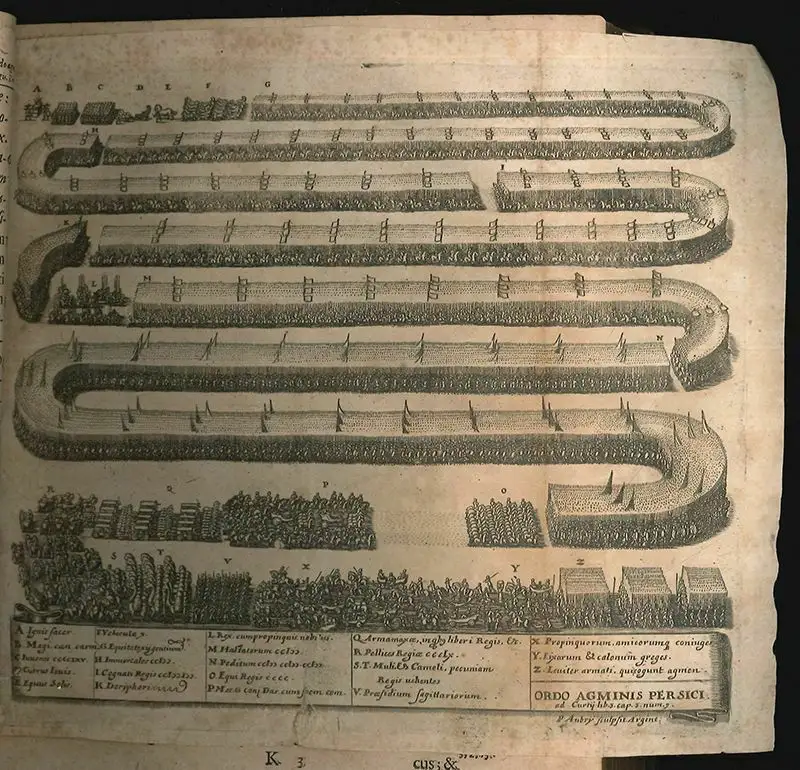 A B C D E F G
H
I
K
L M
N
R Q P O
S T V X Y Z
A Ignis sacer.
B. Magi can. carm.
C Iuuenes ccclxv.
D Currus Iouis.
E. Equus Solis.
F. Vehicula x.
H. Immortales
I. Cognati Regis
K. Doryphori
L Rex. cum propinquis nobilis.
M. Hastatorum
N. Peditum
O. Equi Regis cccc.
P. Mater conj. Dar. cum
Q. Armamaxæ, in quib liberi Regis, &c.
R. Pellices Regiæ ccclx.
S. T. Muli & Cameli, pecuniam
Regis uehentes
V. Præsidium sagittariorum.
X. Propinquorum, amicorumq coniuges
Y. Lixarum & calonum greges.
Z. Leuiter armati, qui cogunt agmen.
ORDO AGMINIS PERSICI.
ad Curtij lib. 3. cap. 3. num. 9.
P Aubry sculpsit Argent.
K 3 cus; &